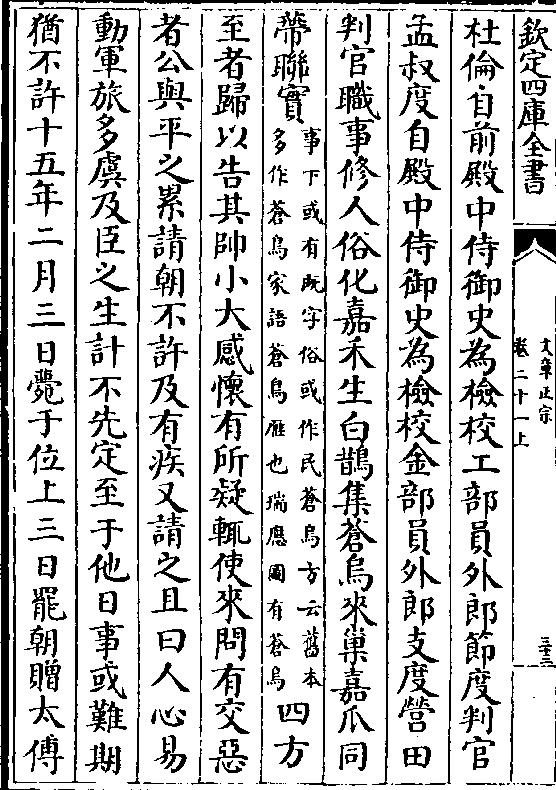 欽定四庫全書
文章正宗
卷二十一上
三十三
杜倫自前殿中侍御史為檢校工部員外郎節度判官
孟叔度自殿中侍御史為檢校金部員外郎支度營田
判官職事修人俗化嘉禾生白鵲集蒼烏來巢嘉瓜同
蔕聯實事下或有既字俗或作民蒼烏方云舊本
多作蒼鳥家語蒼鳥雁也瑞應圖有蒼烏四方
至者歸以告其帥小大感懷有所疑輒使來問有交惡
者公與平之累請朝不許及有疾又請之且曰人心易
動軍旅多虞及臣之生計不先定至于他日事或難期
猶不許十五年二月三日薨于位上三日罷朝贈太傅